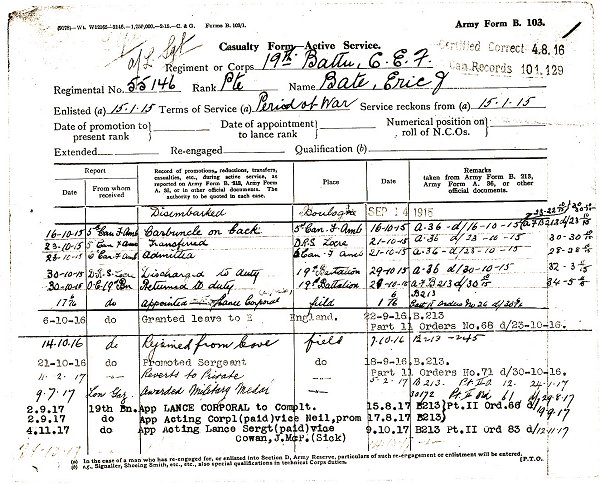 (9176)—Wt. W12365—2146.—1,750,000.—2-15.—C. & G. Forms B. 103/1.
Army Form B. 103.
Casualty Form—Active Service.
Certified Correct 4.8.16
Can Records 101,129
a/L Sgt
Regiment or Corps 19th Battn, C. E. F.
Regimental No. 55146 Rank Pte Name Bate, Eric J
Enlisted (a) 15.1.15 Terms of Service (a) Period of War Service reckons from (a) 15.1.15
Date of promotion to present rank Date of appointment to lance rank Numerical position on roll of N.C.Os.
Extended Re-engaged Qualification (b)
Report
Date From whom received
Record of promotions, reductions, transfers, casualties, etc., during active service, as reported on Army Form B. 213, Army Form A. 36, or in other official documents. The authority to be quoted in each case.
Place Date
Remarks taken from Army Form B. 213, Army Form A. 36, or other official documents.
Disembarked Boulogne SEP 14 1915
16-10-15 5th Can. F. Amb Carbuncle on back 5th Can. F. Amb 16-10-15 A.36 d/16-10-15
23-10-15 5 Can F Amb Transferred D.R.S. Locre 21-10-15 A.36 d/23-10-15
23-10-15 Can F. Amb Admitted 6 Can. F. Amb 21-10-15 A.36 d/23-10-15
30-10-15 D.R.S. Locre Discharged to duty 19th Battalion 29-10-15 A.36 d/30-10-15
30-10-15 O.C. 19th Bn Returned to duty 19th Battalion 28-10-15 d/30-10-15
do Appointed Lance Corporal field B213
6-10-16 do Granted leave to England. 22-9-16.B.
Part 11 Orders No.68 d/23-10-16.
14.10.16 do Rejoined from leave field 7.10.16 B213
21-10-16 do Promoted Sergeant do 18-9-16.B213.
Part 11 Orders No.71 d/30-10-16.
11.2.17 Reverts to Private 5-2.17 B213.
9.7.17 Lon Gaz. Awarded Military Medal 30172
2.9.17 19th Bn. App LANCE CORPORAL to Complt. 15.8.17 B213) Pt.II Ord.66 d/
2.9.17 do App Acting Corpl(paid)vice Neil,prom 17.8.17 B213) 9.9.17
4.11.17 do App Acting Lance Sergt(paid)vice Cowan,J.McP.(Sick) 9.10.17 B213 Pt.II Ord 83 d/12.11.17
(a) In the case of a man who has re-engaged for, or enlisted into Section D, Army Reserve, particulars of such re-engagement or enlistment will be entered.
(b) e.g., Signaller, Shoeing Smith, etc., etc., also special qualifications in technical Corps duties. [P.T.O.